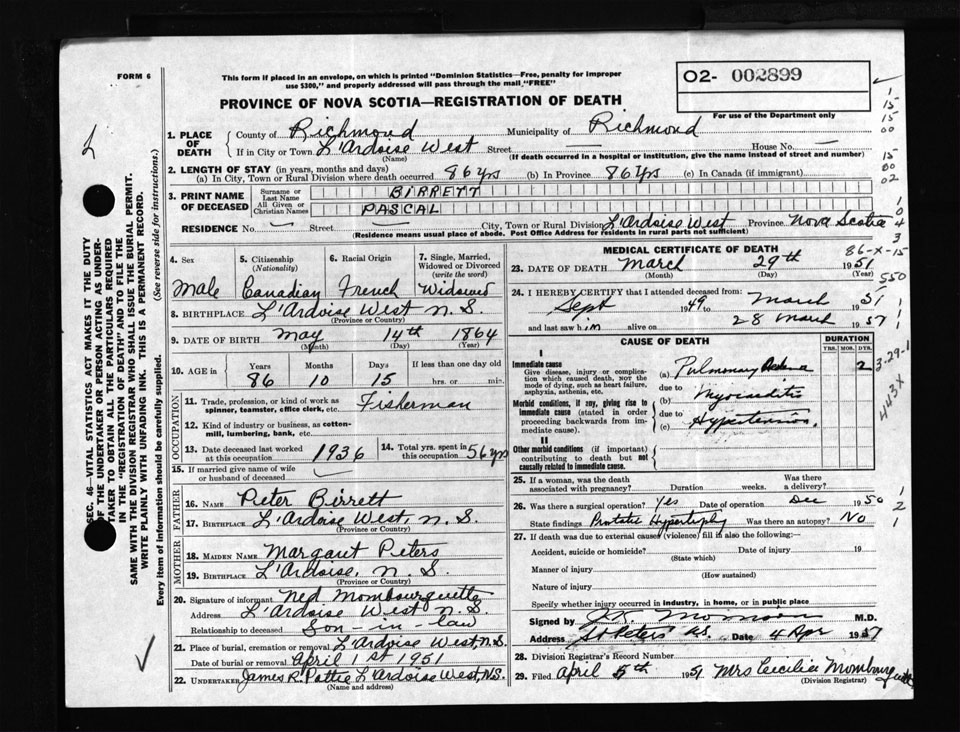 FORM 6
This form if placed in an envelope, on which is printed "Dominion Statistics—Free, penalty for improper
use $300," and properly addressed will pass through the mail "FREE"
O2- 002899
For use of the Department only
PROVINCE OF NOVA SCOTIA—REGISTRATION OF DEATH
1. PLACE OF DEATH County of Richmond Municipality of Richmond
If in City or Town L'Ardoise West Street — House No. —
(Name) (If death occurred in a hospital or institution, give the name instead of street and number)
2. LENGTH OF STAY (in years, months and days)
(a) In City, Town or Rural Division where death occurred 86 yrs (b) In Province 86 yrs (c) In Canada (if immigrant)
3. PRINT NAME OF DECEASED Surname or Last Name BIRRETT
All Given or Christian Names PASCAL
RESIDENCE No. — Street City, Town or Rural Division L'Ardoise West Province Nova Scotia
(Residence means usual place of abode. Post Office Address for residents in rural parts not sufficient)
4. Sex 5. Citizenship (Nationality) 6. Racial Origin 7. Single, Married, Widowed or Divorced (write the word)
Male Canadian French Widowed
8. BIRTHPLACE L'Ardoise West N.S.
(Province or Country)
9. DATE OF BIRTH May 14th 1864
(Month) (Day) (Year)
10. AGE in Years Months Days If less than one day old
86 10 15 hrs. or min.
OCCUPATION
11. Trade, profession, or kind of work as spinner, teamster, office clerk, etc. Fisherman
12. Kind of industry or business, as cotton-mill, lumbering, bank, etc.
13. Date deceased last worked at this occupation 1936 14. Total yrs. spent in this occupation 56 yrs
15. If married give name of wife or husband of deceased
FATHER
16. NAME Pieter Birrett
17. BIRTHPLACE L'Ardoise West, N.S.
(Province or Country)
MOTHER
18. MAIDEN NAME Margaut Pieters
19. BIRTHPLACE L'Ardoise, N.S.
(Province or Country)
20. Signature of informant Ned Mombourguette
Address L'Ardoise West N.S.
Relationship to deceased Son-in-law
21. Place of burial, cremation or removal L'Ardoise West, N.S.
Date of burial or removal April 1st 1951
22. UNDERTAKER James R. Pattie L'Ardoise West, N.S.
(Name and address)
MEDICAL CERTIFICATE OF DEATH
86-X-15
23. DATE OF DEATH March 29th 1951
(Month) (Day) (Year)
24. I HEREBY CERTIFY that I attended deceased from:
Sept 1949 to March 1951
and last saw him alive on 28 March 1951
CAUSE OF DEATH
DURATION
YRS. MOS. DYS.
I
Immediate cause
Give disease, injury or complication which caused death, not the mode of dying, such as heart failure, asphyxia, asthenia, etc.
(a) Pulmonary 2
due to
(b) Myocarditis
Morbid conditions, if any, giving rise to immediate cause (stated in order proceeding backwards from immediate cause).
due to
(c) Hypertension
II
Other morbid conditions (if important) contributing to death but not causally related to immediate cause.
25. If a woman, was the death associated with pregnancy? Duration weeks. Was there a delivery?
26. Was there a surgical operation? Yes Date of operation Dec 1950
State findings Prostatic Hypertrophy Was there an autopsy? No
27. If death was due to external causes (violence) fill in also the following:—
Accident, suicide or homicide? Date of injury 19
(State which)
Manner of injury
(How sustained)
Nature of injury
Specify whether injury occurred in industry, in home, or in public place
Signed by M.D.
Address St Peters N.S. Date 4 Apr 1957
28. Division Registrar's Record Number
29. Filed April 5th 1951 Mrs Cecilia Mombourquette
(Division Registrar)
SEC. 46—VITAL STATISTICS ACT MAKES IT THE DUTY
OF THE UNDERTAKER OR PERSON ACTING AS UNDER-
TAKER TO OBTAIN ALL THE PARTICULARS REQUIRED
IN THE "REGISTRATION OF DEATH" AND TO FILE THE
SAME WITH THE DIVISION REGISTRAR WHO SHALL ISSUE THE BURIAL PERMIT.
WRITE PLAINLY WITH UNFADING INK. THIS IS A PERMANENT RECORD.
Every item of information should be carefully supplied. (See reverse side for instructions.)
1
15
15
00
15
00
02
1
0
4
3
550
1
1
3-29-1
443X
1
2
1